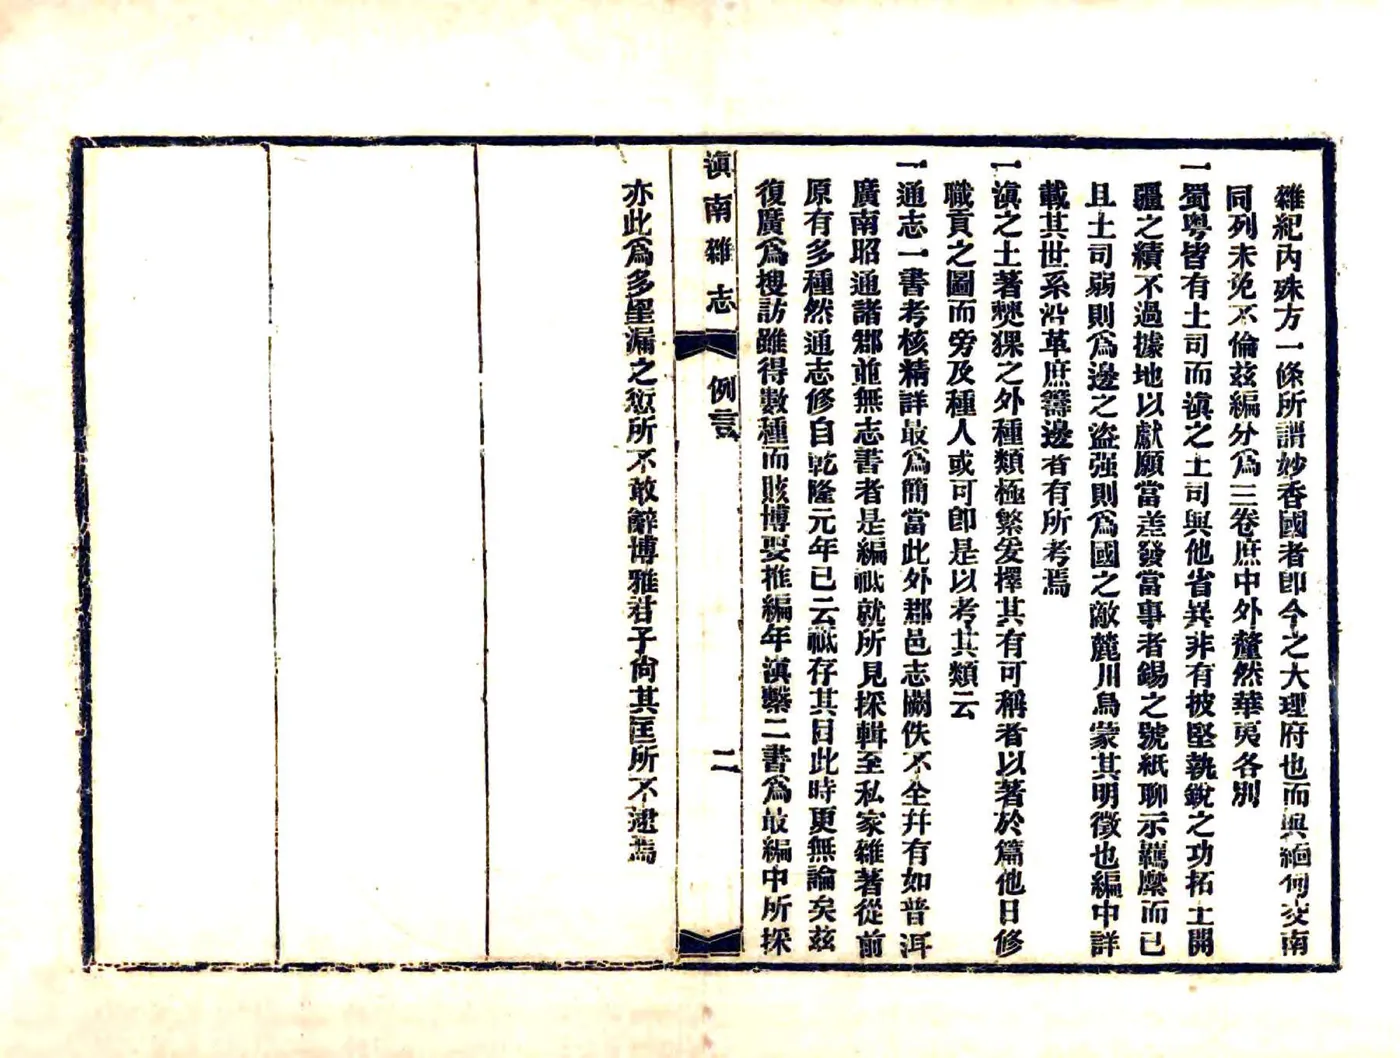 雜紀內殊方一條所謂妙香國者卽今之大理府也而與緬甸交南
同列未免不倫兹編分爲三卷庶中外釐然華夷各別
一蜀粵皆有土司而滇之土司與他省異非有披堅執銳之功拓土開
疆之績不過據地以獻願當差發當事者錫之號紙聊示羈縻而已
且土司弱則爲邊之盜强則爲國之敵麓川烏蒙其明徵也編中詳
載其世系沿革庶籌邊者有所考焉
一滇之土著爨猓之外種類極繁爰擇其有可稱者以著於篇他日修
職貢之圖而旁及種人或可卽是以考其類云
一通志一書考核精詳最爲簡當此外郡邑志闕佚不全幷有如普洱
廣南昭通諸郡並無志書者是編祗就所見採輯至私家雜著從前
原有多種然通志修自乾隆元年已云祗存其目此時更無論矣兹
復廣爲搜訪雖得數種而賅博要推編年滇繫二書爲最編中所採
滇南雜志
例言
二
亦此爲多罣漏之愆所不敢辭博雅君子尙其匡所不逮焉